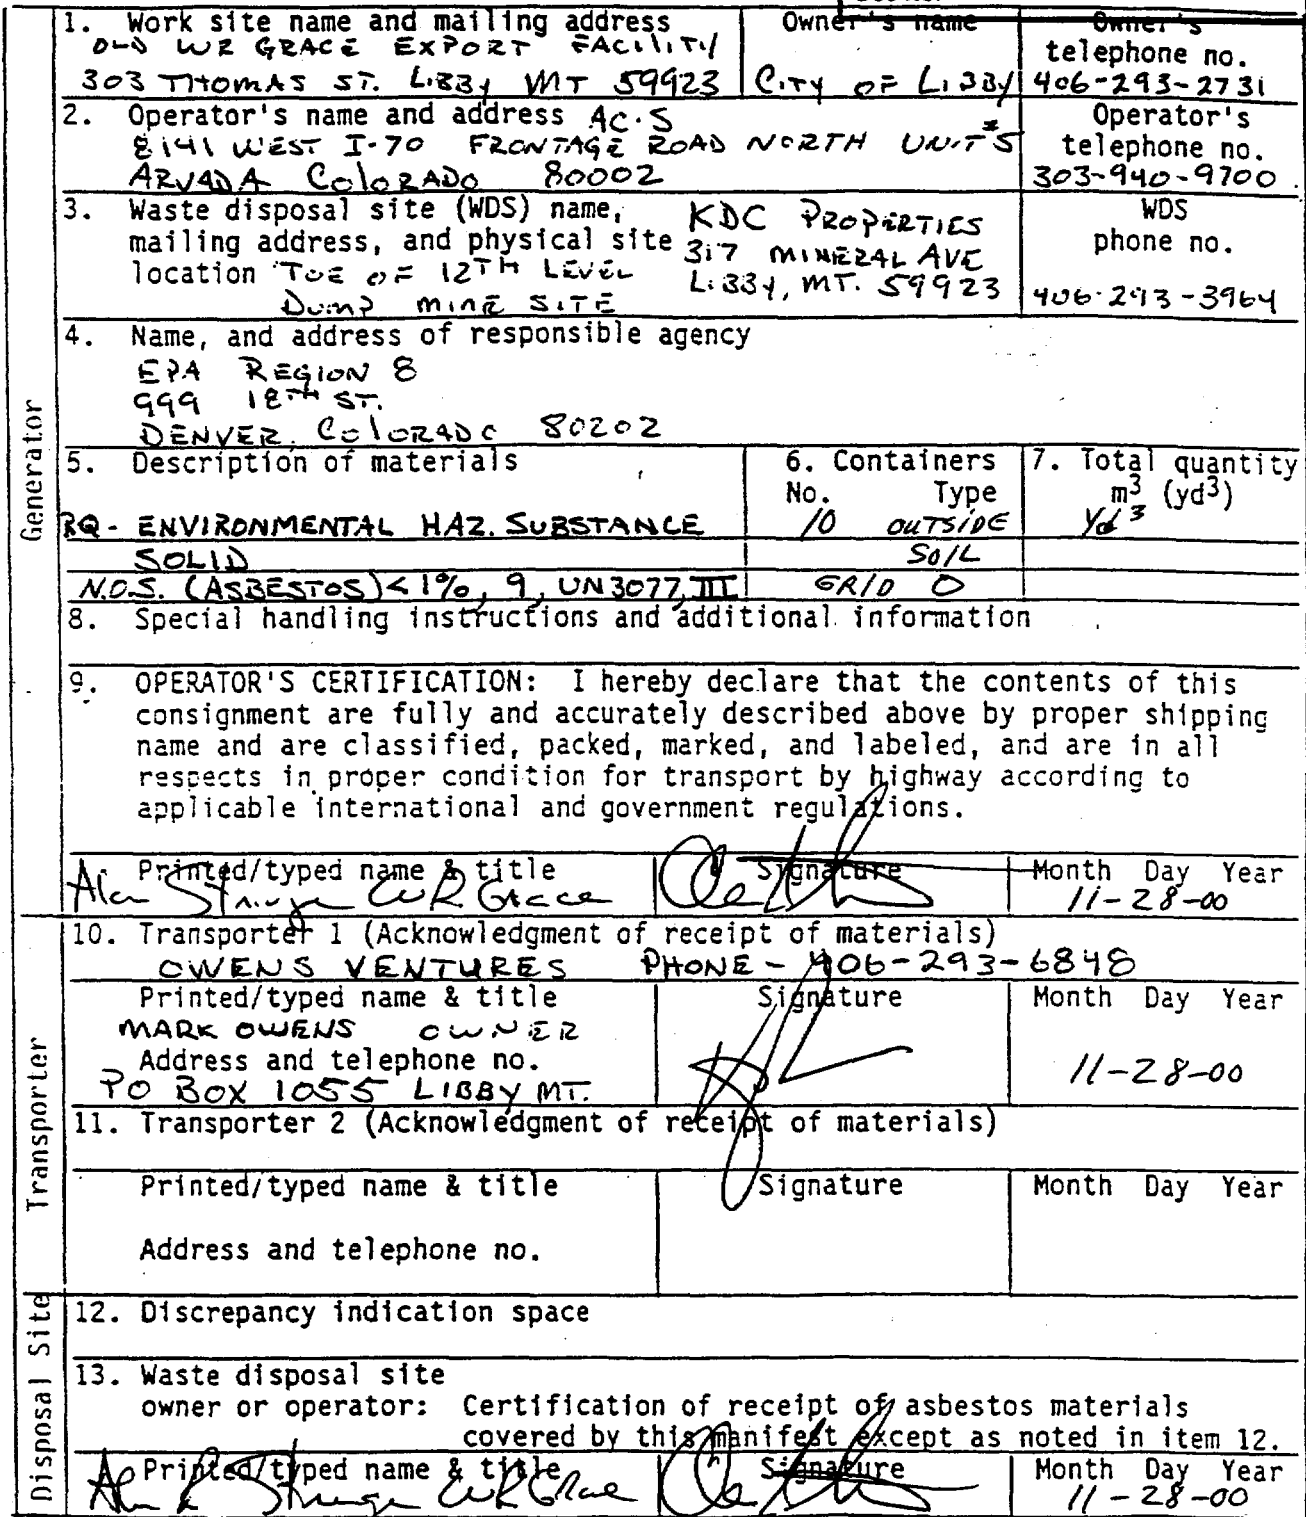 1. Work site name and mailing address
OLD WR GRACE EXPORT FACILITY
303 THOMAS ST. LIBBY MT 59923
Owner's name
CITY OF LIBBY
Owner's
telephone no.
406-293-2731
2. Operator's name and address AC·S
8141 WEST I-70 FRONTAGE ROAD NORTH UNIT #5
ARVADA COLORADO 80002
Operator's
telephone no.
303-940-9700
3. Waste disposal site (WDS) name,
mailing address, and physical site
location TOE OF 12TH LEVEL
DUMP MINE SITE
KDC PROPERTIES
317 MINERAL AVE
LIBBY, MT. 59923
WDS
phone no.
406-293-3964
Generator
4. Name, and address of responsible agency
EPA REGION 8
999 18TH ST.
DENVER, COLORADO 80202
5. Description of materials
RQ - ENVIRONMENTAL HAZ. SUBSTANCE
SOLID
N.O.S. (ASBESTOS) < 1%, 9, UN3077, III
6. Containers
No. Type
10 OUTSIDE
SOIL
GRID O
7. Total quantity
m3 (yd3)
Yd3
8. Special handling instructions and additional information
9. OPERATOR'S CERTIFICATION: I hereby declare that the contents of this
consignment are fully and accurately described above by proper shipping
name and are classified, packed, marked, and labeled, and are in all
respects in proper condition for transport by highway according to
applicable international and government regulations.
Printed/typed name & title
Alan Stringer WR Grace
Signature
Month Day Year
11-28-00
Transporter
10. Transporter 1 (Acknowledgment of receipt of materials)
OWENS VENTURES PHONE - 406-293-6848
Printed/typed name & title
MARK OWENS OWNER
Address and telephone no.
PO BOX 1055 LIBBY MT.
Signature
Month Day Year
11-28-00
11. Transporter 2 (Acknowledgment of receipt of materials)
Printed/typed name & title
Address and telephone no.
Signature
Month Day Year
Disposal Site
12. Discrepancy indication space
13. Waste disposal site
owner or operator: Certification of receipt of asbestos materials
covered by this manifest except as noted in item 12.
Printed/typed name & title
Alan R Stringer WR Grace
Signature
Month Day Year
11-28-00